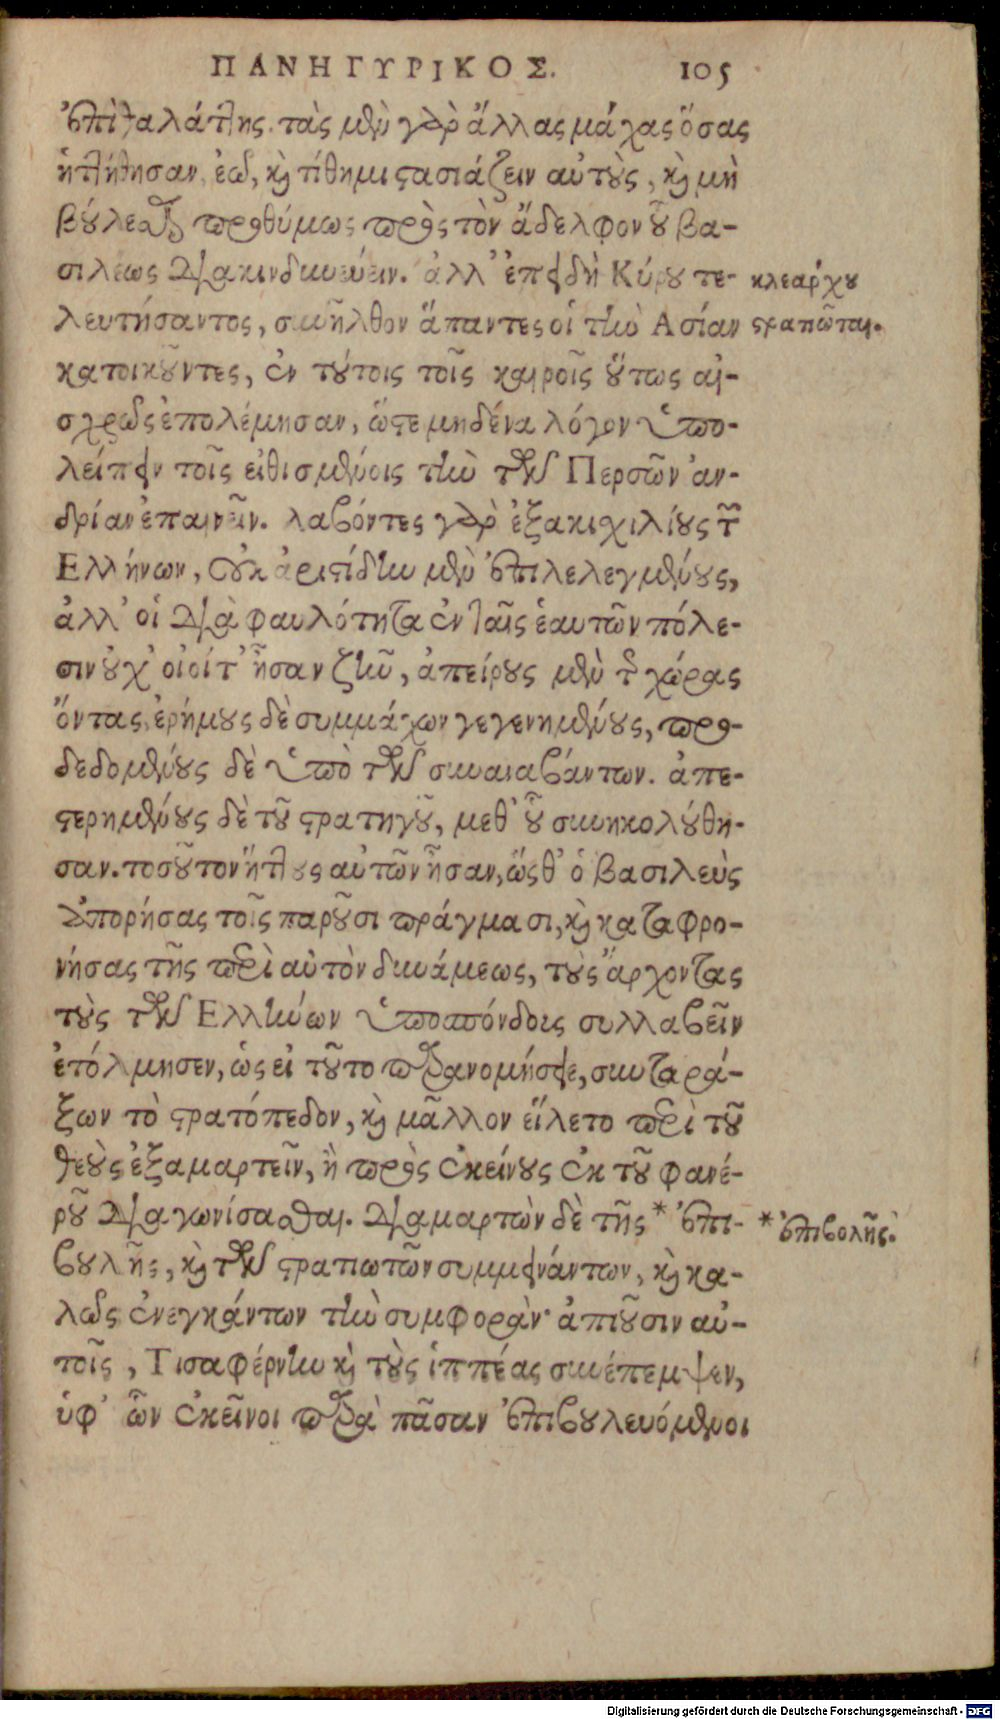 ΠΑΝΗΓΥΡΙΚΟΣ. 105
ἐπὶ θαλάττης. τὰς μὲν γὰρ ἄλλας μάχας ὅσας
ἡττήθησαν, ἐῶ, καὶ τίθημι στασιάζειν αὐτοὺς, καὶ μὴ
βούλεσθαι προθύμως πρὸς τὸν ἀδελφὸν τοῦ βα-
σιλέως διακινδυνεύειν. ἀλλ' ἐπειδὴ Κύρου τε-
λευτήσαντος, συνῆλθον ἅπαντες οἱ τὴν Ἀσίαν
κατοικοῦντες, ἐν τούτοις τοῖς καιροῖς οὕτως αἰ-
σχρῶς ἐπολέμησαν, ὥστε μηδένα λόγον ὑπο-
λείπειν τοῖς εἰθισμένοις τὴν τῶν Περσῶν ἀν-
δρίαν ἐπαινεῖν. λαβόντες γὰρ ἑξακισχιλίους τῶν
Ελλήνων, οὐκ ἀριστίδην μὲν ἐπιλελεγμένους,
ἀλλ' οἳ διὰ φαυλότητα ἐν ταῖς ἑαυτῶν πόλε-
σιν οὐχ' οἷοί τ' ἦσαν ζῆν, ἀπείρους μὲν τῆς χώρας
ὄντας, ἐρήμους δὲ συμμάχων γεγενημένους, προ-
δεδομένους δὲ ὑπὸ τῶν συναναβάντων. ἀπε-
στερημένους δὲ τοῦ στρατηγοῦ, μεθ' οὗ συνηκολούθη-
σαν. τοσοῦτον ἥττους αὐτῶν ἦσαν, ὥσθ' ὁ βασιλεὺς
ἀπορήσας τοῖς παροῦσι πράγμασι, καὶ καταφρο-
νήσας τῆς περὶ αὐτὸν δυνάμεως, τοὺς ἄρχοντας
τοὺς τῶν Ελλήνων ὑποσπόνδους συλλαβεῖν
ἐτόλμησεν, ὡς εἰ τοῦτο παρανομήσειε, συνταρά-
ξων τὸ στρατόπεδον, καὶ μᾶλλον εἵλετο περὶ τοὺς
θεοὺς ἐξαμαρτεῖν, ἢ πρὸς ἐκείνους ἐκ τοῦ φανε-
ροῦ διαγωνίσασθαι. διαμαρτὼν δὲ τῆς * ἐπι-
βουλῆς, καὶ τῶν στρατιωτῶν συμμεινάντων, καὶ κα-
λῶς ἐνεγκάντων τὴν συμφοράν· ἀπιοῦσιν αὐ-
τοῖς, Τισαφέρνην καὶ τοὺς ἱππέας συνέπεμψεν,
ὑφ' ὧν ἐκεῖνοι παρὰ πᾶσαν ἐπιβουλευόμενοι
κλεάρχου
στρατιῶται.
* ἐπιβολῆς.
Digitalisierung gefördert durch die Deutsche Forschungsgemeinschaft - DFG